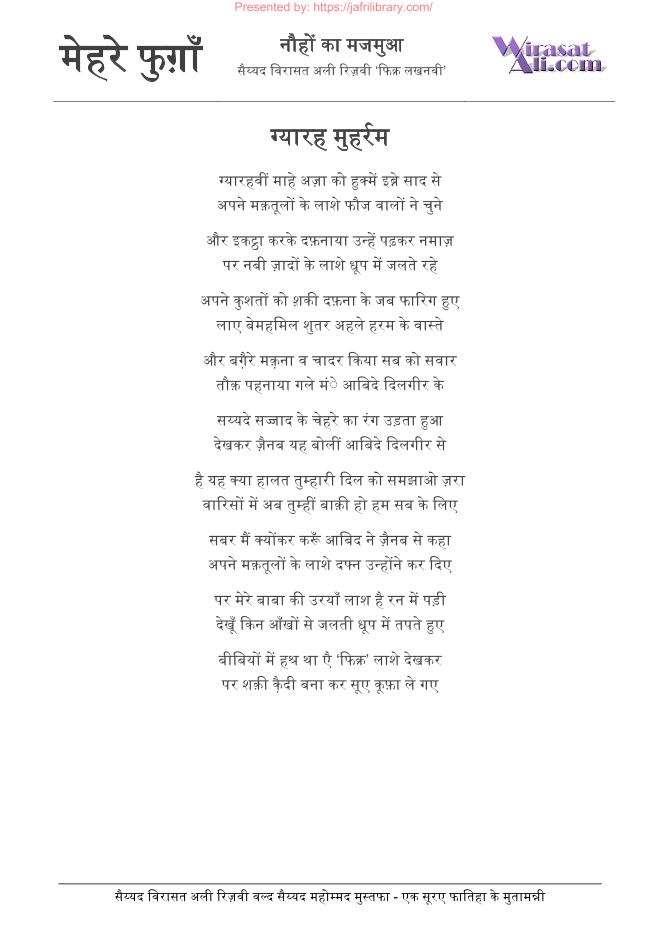 Presented by: https://jafrilibrary.com/
मेहरे फुग़ाँ
नौहों का मजमुआ
सैय्यद विरासत अली रिज़वी ‘फिक्र लखनवी’
Wirasat
Ali.com
ग्यारह मुहर्रम
ग्यारहवीं माहे अज़ा को हुक्में इब्ने साद से
अपने मक़तूलों के लाशे फौज वालों ने चुने
और इकट्ठा करके दफ़नाया उन्हें पढ़कर नमाज़
पर नबी ज़ादों के लाशे धूप में जलते रहे
अपने कुशतों को श़की दफ़ना के जब फारिग हुए
लाए बेमहमिल शुतर अहले हरम के वास्ते
और बग़ैरे मक़ना व चादर किया सब को सवार
तौक़ पहनाया गले मंे आबिदे दिलगीर के
सय्यदे सज्जाद के चेहरे का रंग उड़ता हुआ
देखकर ज़ैनब यह बोलीं आबिदे दिलगीर से
है यह क्या हालत तुम्हारी दिल को समझाओ ज़रा
वारिसों में अब तुम्हीं बाक़ी हो हम सब के लिए
सबर मैं क्योंकर करूँ आबिद ने ज़ैनब से कहा
अपने मक़तूलों के लाशे दफ्न उन्होंने कर दिए
पर मेरे बाबा की उरयाँ लाश है रन में पड़ी
देखूँ किन आँखों से जलती धूप में तपते हुए
बीबियों में हश्र था एै ‘फिक्र’ लाशे देखकर
पर शक़ी कै़दी बना कर सूए कूफ़ा ले गए
सैय्यद विरासत अली रिज़वी वल्द सैय्यद महोम्मद मुस्तफा - एक सूरए फातिहा के मुतामन्नी